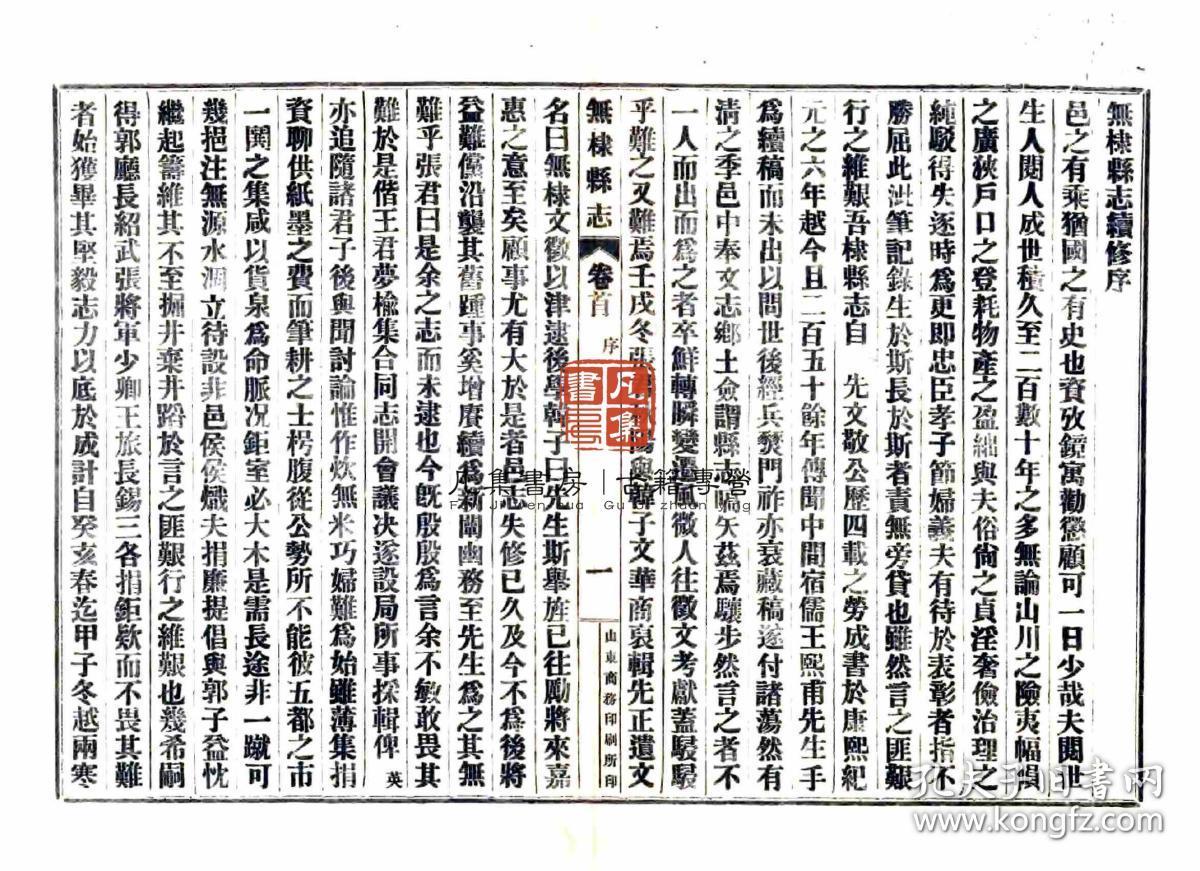 無棣縣志續修序
邑之有乘猶國之有史也資攷鏡寓勸懲顧可一日少哉夫閱世
生人閱人成世積久至二百數十年之多無論山川之險夷幅幀
之廣狹戶口之登耗物產之盈絀與夫俗尚之貞淫奢儉治理之
純駁得失逐時為更即忠臣孝子節婦義夫有待於表彰者指不
勝屈此泚筆記錄生於斯長於斯者責無旁貸也雖然言之匪艱
行之維艱吾棣縣志自 先文敬公歷四載之勞成書於康熙紀
元之六年越今且二百五十餘年傳聞中間宿儒王熙甫先生手
為續稿而未出以問世後經兵燹門祚亦衰藏稿遂付諸蕩然有
清之季邑中奉文志鄉土僉謂縣志嚆矢茲焉驤步然言之者不
一人而出而為之者卒鮮轉瞬變遷風微人往徵文考獻蓋駸駸
乎難之又難焉壬戌冬張與韓子文華商裒輯先正遺文
無棣縣志 卷首 序 一 山東商務印刷所印
名曰無棣文徵以津逮後學韓子曰先生斯舉旌已往勵將來嘉
惠之意至矣顧事尤有大於是者邑志失修已久及今不為後將
益難儻沿襲其舊踵事奚增賡續為新闡幽務至先生為之其無
難乎張君曰是余之志而未逮也今既殷殷為言余不敏敢畏其
難於是偕王君夢橀集合同志開會議決遂設局所事採輯俾 英
亦追隨諸君子後與聞討論惟作炊無米巧婦難為始雖薄集捐
資聊供紙墨之費而筆耕之士枵腹從公勢所不能彼五都之市
一閧之集咸以貨泉為命脈况鉅室必大木是需長途非一蹴可
幾挹注無源水涸立待設非邑侯侯熾夫捐廉提倡與郭子益忱
繼起籌維其不至掘井棄井蹈於言之匪艱行之維艱也幾希嗣
得郭廳長紹武張將軍少卿王旅長錫三各捐鉅欵而不畏其難
者始獲畢其堅毅志力以底於成計自癸亥春迄甲子冬越兩寒
凡集書房｜古籍專營
Fan Ji Wen hua Gu Ji zhuan ying
孔夫子旧书网
www.kongfz.com